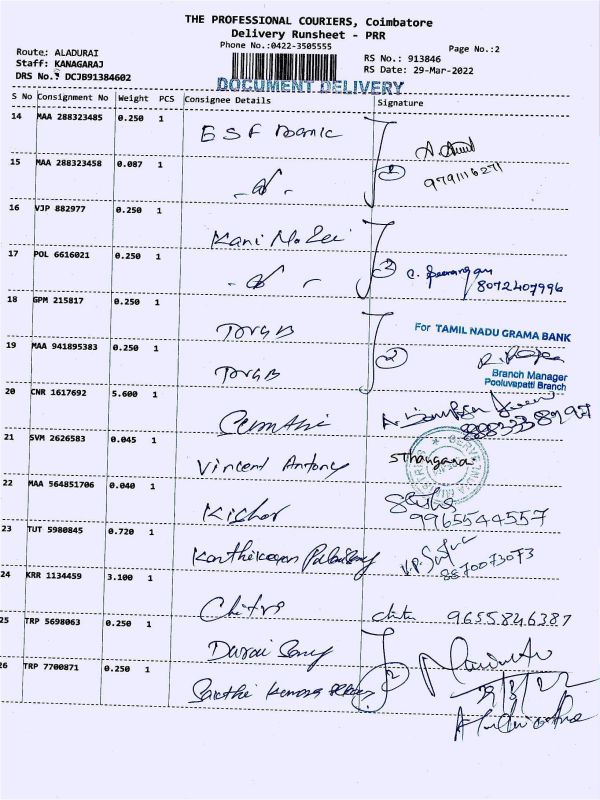 THE PROFESSIONAL COURIERS, Coimbatore
Delivery Runsheet - PRR
Phone No.:0422-3505555
Page No.:2
Route: ALADURAI
RS No.: 913846
Staff: KANAGARAJ
RS Date: 29-Mar-2022
DRS No.: DCJB91384602
DOCUMENT DELIVERY
S No Consignment No Weight PCS Consignee Details Signature
14 MAA 288323485 0.250 1 ESF
15 MAA 288323458 0.087 1
2
9791116271
16 VJP 882977 0.250 1 Kani
17 POL 6616021 0.250 1
2
8072407996
18 GPM 215817 0.250 1 TNGB
For TAMIL NADU GRAMA BANK
19 MAA 941895383 0.250 1 TNGB
2
Branch Manager
Pooluvapatti Branch
20 CNR 1617692 5.600 1
21 SVM 2626583 0.045 1 Vincent Antony
22 MAA 564851706 0.040 1 Kishor
9965544557
23 TUT 5980845 0.720 1 Karthikeyan
8870073073
24 KRR 1134459 3.100 1 Chitra
9655846387
25 TRP 5698063 0.250 1 Durai Samy
26 TRP 7700871 0.250 1
2